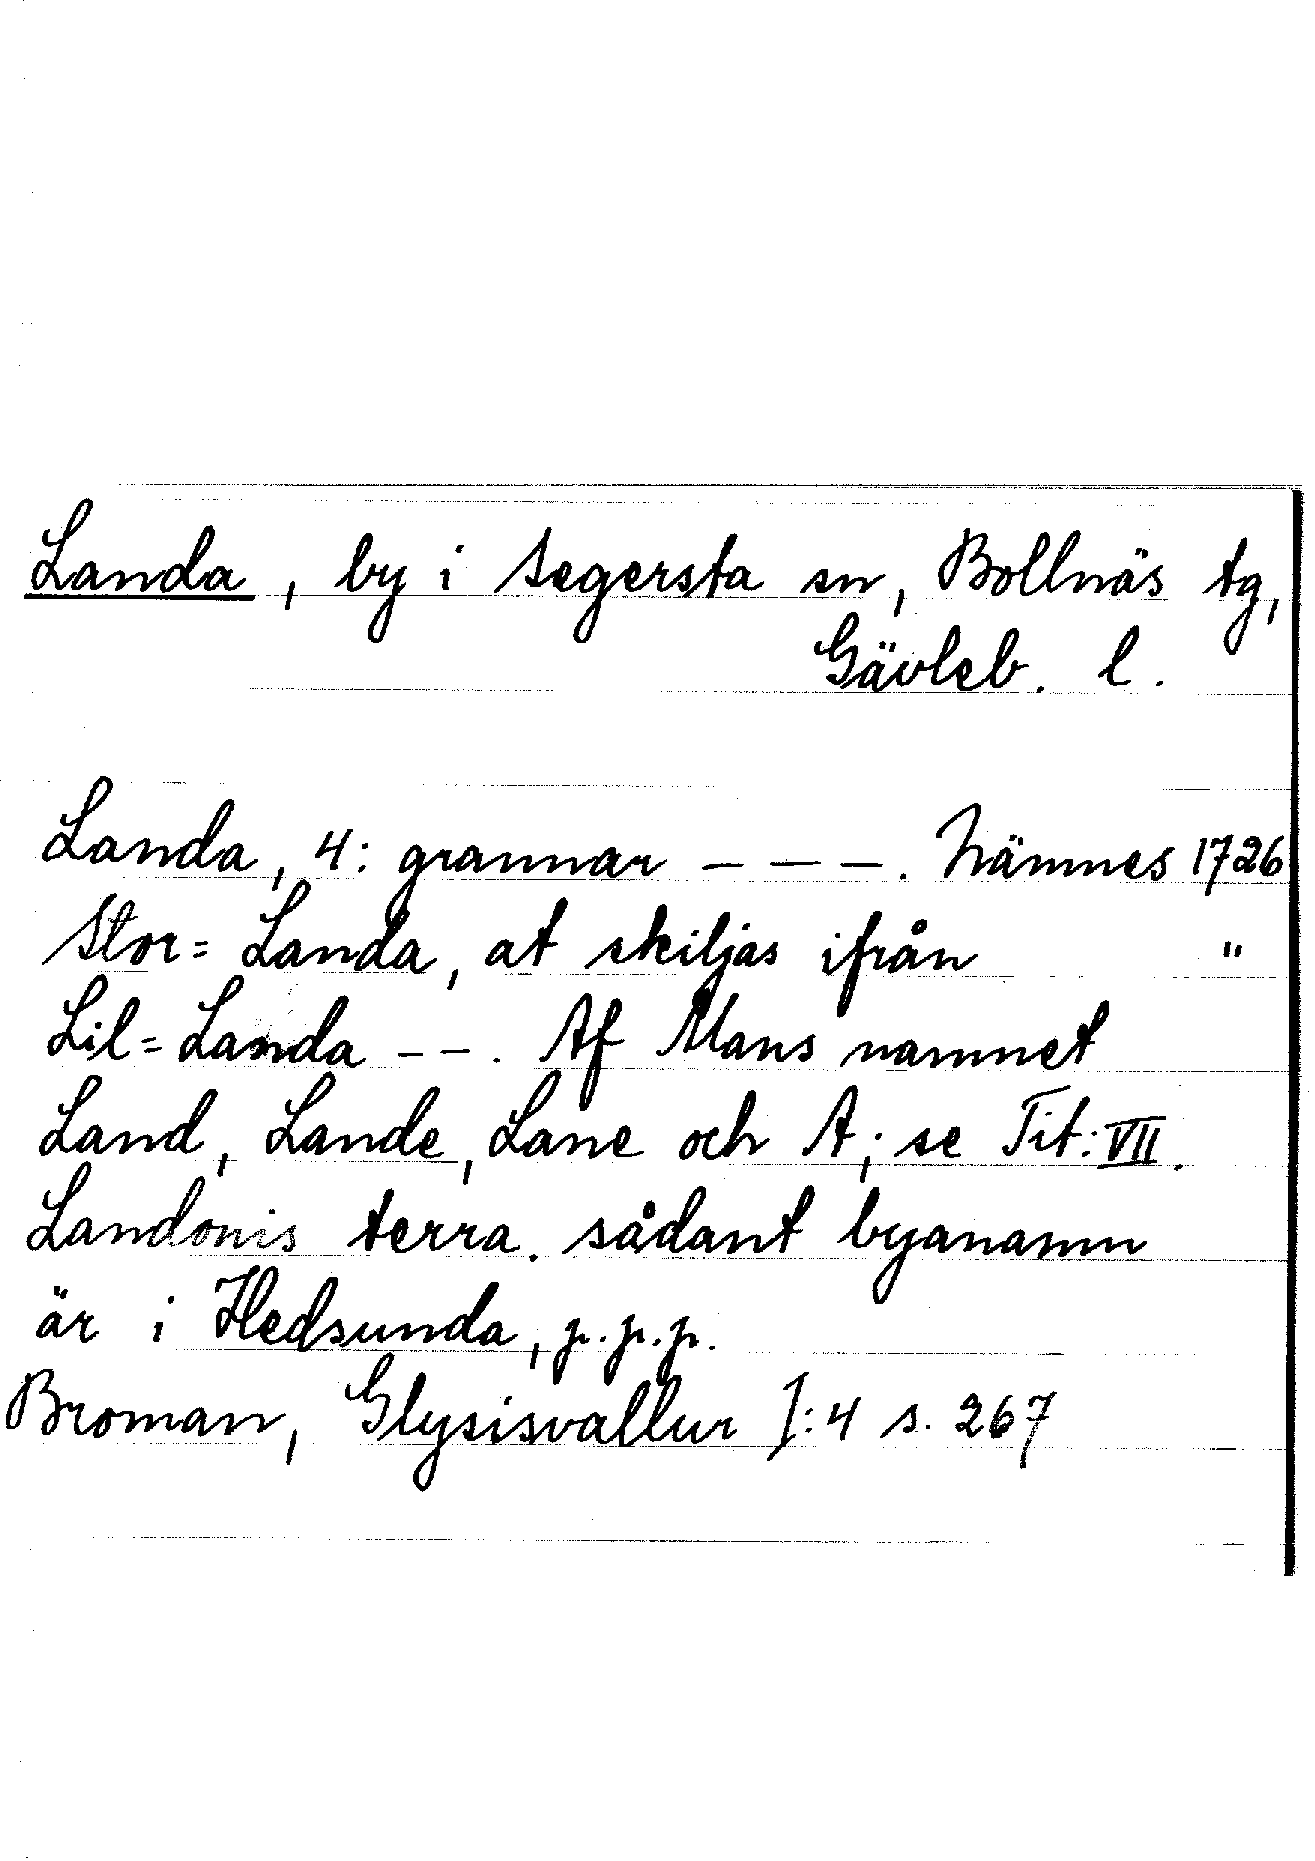 Landa, by i Segersta sn, Bollnäs tg,
Gävleb. l.
Landa, 4: grannar – – –. Nämnes 1726
Stor= Landa, at skiljas ifrån "
Lil= Landa – –. Af Mans namnet
Land, Lande, Lane och A; se Tit: VII.
Landonis terra. sådant byanamn
är i Hedsunda, p.p.p.
Broman, Glysisvallur I:4 s. 267